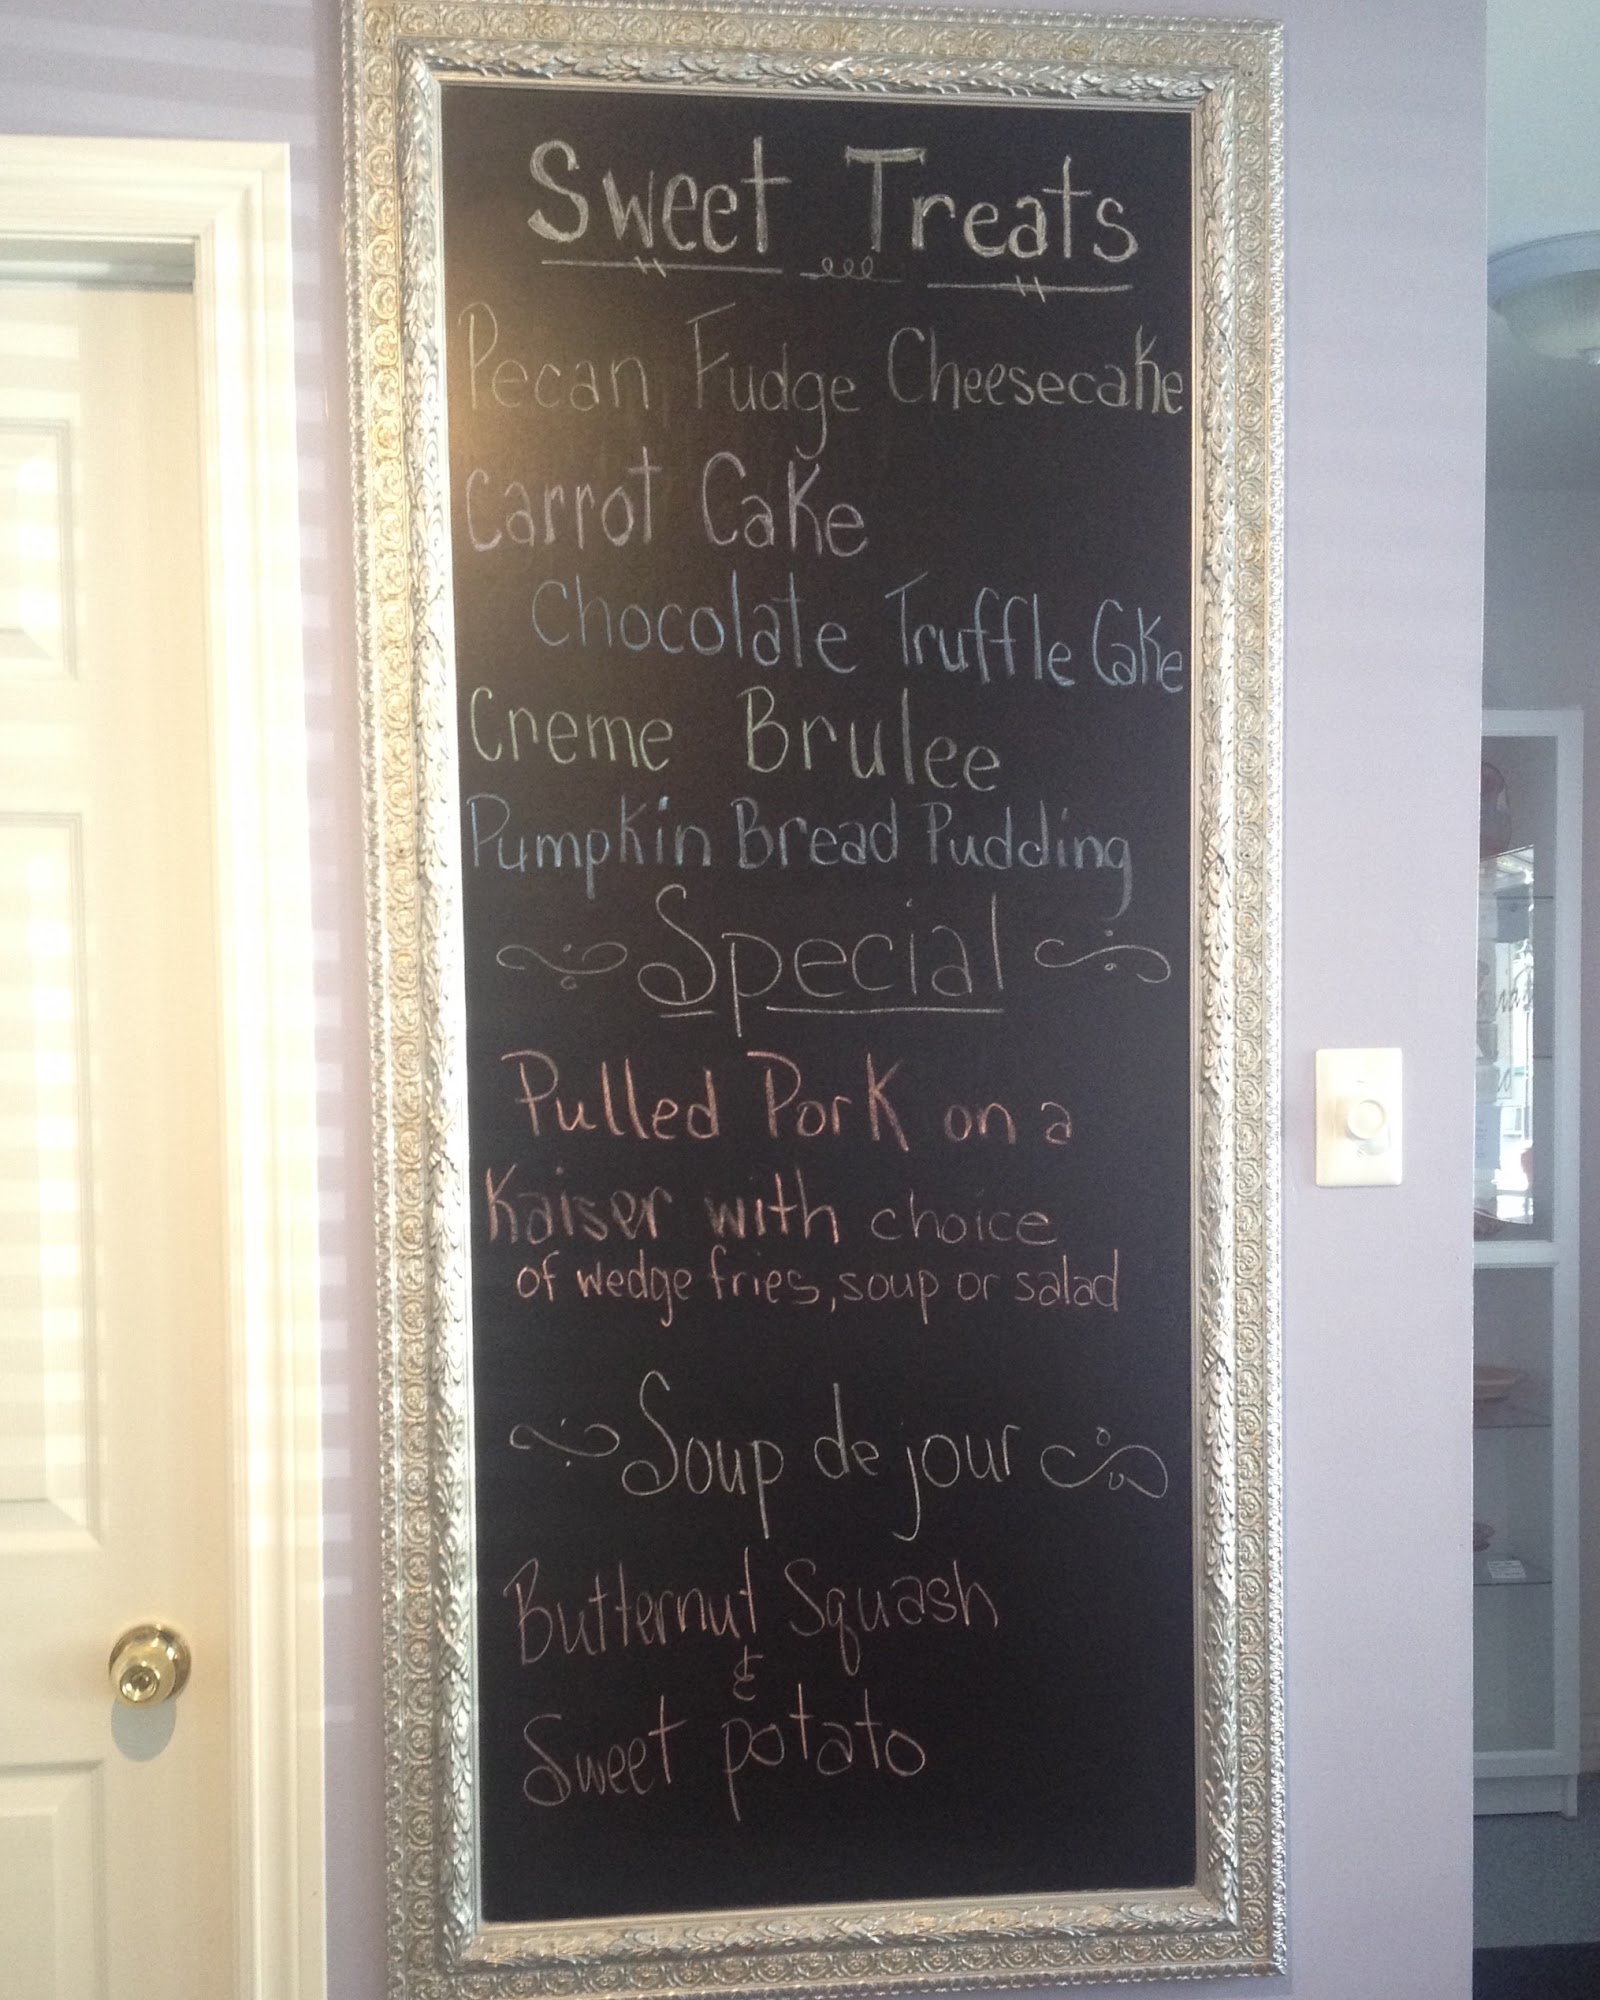 Sweet Treats
Pecan Fudge Cheesecake
Carrot Cake
Chocolate Truffle Cake
Creme Brulee
Pumpkin Bread Pudding
Special
Pulled Pork on a
Kaiser with choice
of wedge fries, soup or salad
Soup de jour
Butternut Squash
&
Sweet potato